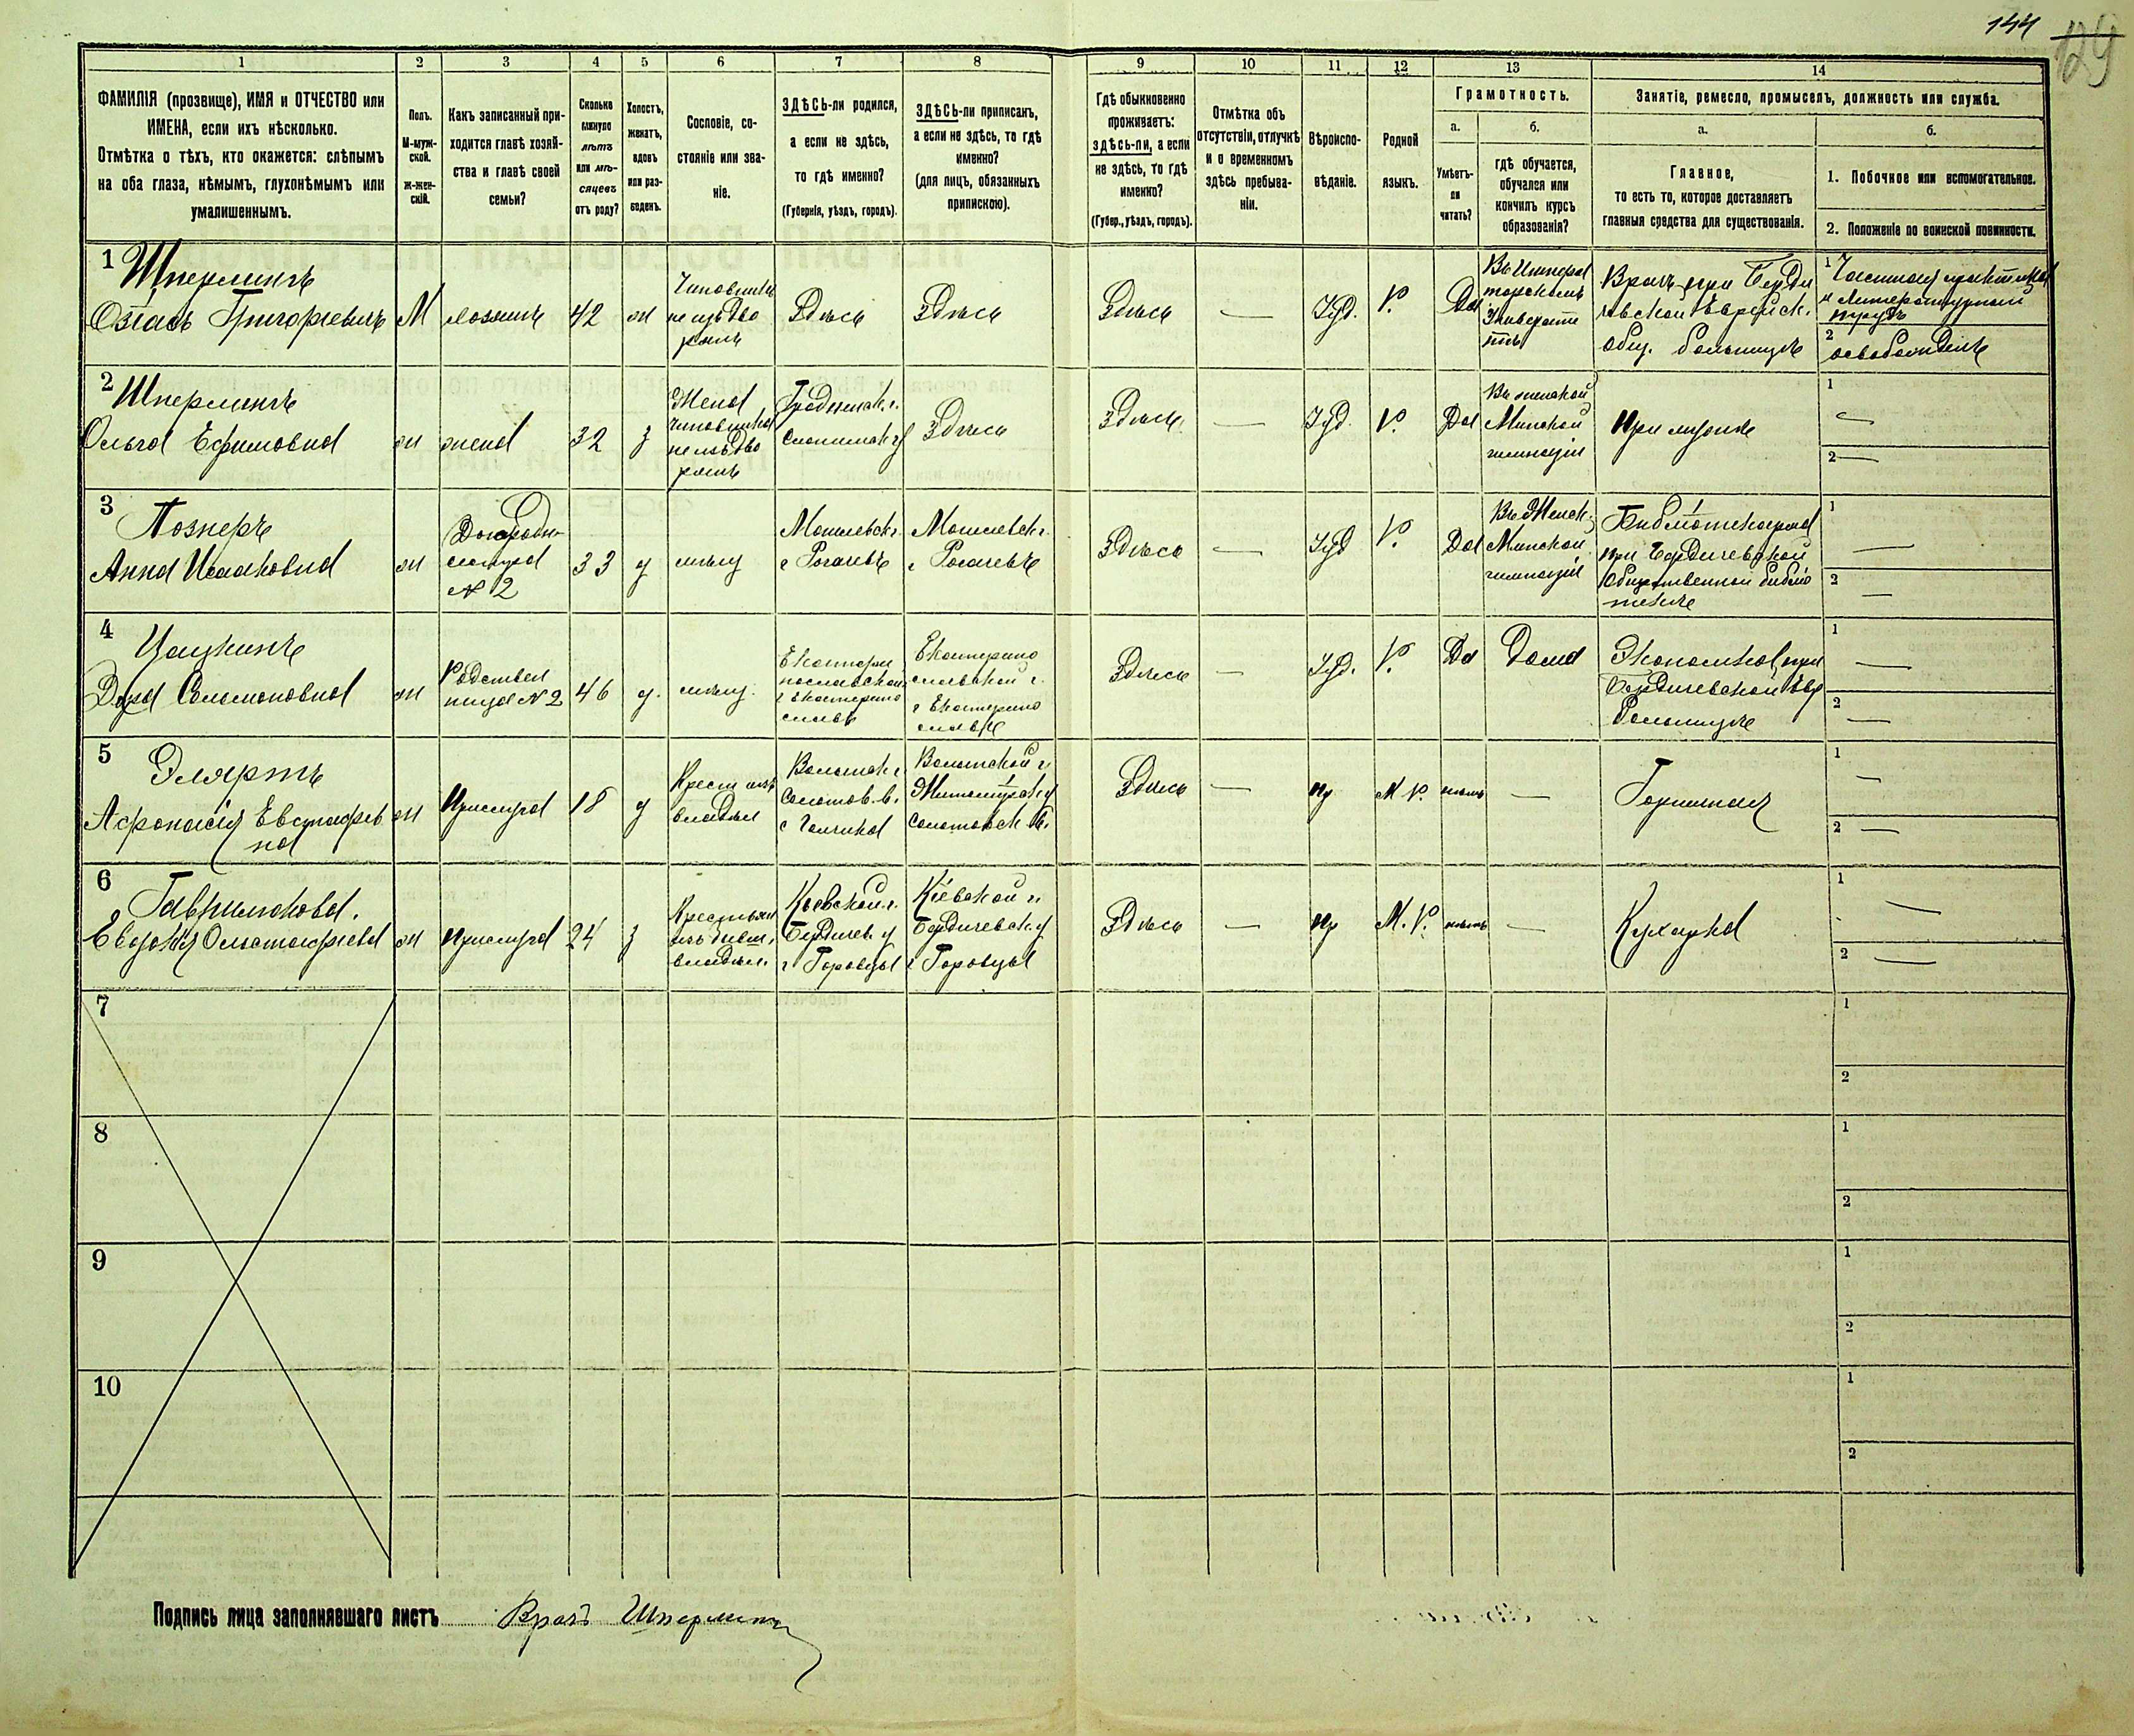 144
129
1
2
3
4
5
6
7
8
9
10
11
12
13
14
ФАМИЛІЯ (прозвище), ИМЯ и ОТЧЕСТВО или
ИМЕНА, если ихъ нѣсколько.
Отмѣтка о тѣхъ, кто окажется: слѣпымъ
на оба глаза, нѣмымъ, глухонѣмымъ или
умалишеннымъ.
Полъ.
М-муж-
ской.
ж-жен-
скій.
Какъ записанный при-
ходится главѣ хозяй-
ства и главѣ своей
семьи?
Сколько
минуло
лѣтъ
или мѣ-
сяцевъ
отъ роду?
Холостъ,
женатъ,
вдовъ
или раз-
веденъ.
Сословіе, со-
стояніе или зва-
ніе.
ЗДѢСЬ-ли родился,
а если не здѣсь,
то гдѣ именно?
(Губернія, уѣздъ, городъ).
ЗДѢСЬ-ли приписанъ,
а если не здѣсь, то гдѣ
именно?
(для лицъ, обязанныхъ
припискою).
Гдѣ обыкновенно
проживаетъ:
здѣсь-ли, а если
не здѣсь, то гдѣ
именно?
(Губер., уѣздъ, городъ).
Отмѣтка объ
отсутствіи, отлучкѣ
и о временномъ
здѣсь пребыва-
ніи.
Вѣроиспо-
вѣданіе.
Родной
языкъ.
Грамотность.
а.
Умѣетъ-
ли
читать?
б.
гдѣ обучается,
обучался или
кончилъ курсъ
образованія?
Занятіе, ремесло, промыселъ, должность или служба.
а.
Главное,
то есть то, которое доставляетъ
главныя средства для существованія.
б.
1. Побочное или вспомогательное.
2. Положеніе по воинской повинности.
1
Шперлингъ
Озіасъ Григорьевичъ
М
хозяинъ
42
ж
Чиновникъ
не изъ Дво
рянъ
Здѣсь
Здѣсь
Здѣсь
—
Іуд.
Р.
Да
Въ Импера
торскомъ
Университе
тѣ
Врачъ при Берди
чевской Еврейск.
Общ. больницѣ
1 Частная практика
и литературный
трудъ
2
освобожденъ
2
Шперлингъ
Ольга Ефимовна
ж
жена
32
з
Жена
чиновника
не изъ Дво
рянъ
Гродненск. г.
Слонимск у
Здѣсь
Здѣсь
—
Іуд.
Р.
Да
Въ женской
Минской
гимназіи
При мужѣ
1
—
2 —
3
Познеръ
Анна Исааковна
ж
Двоюродн
сестра
№ 2
33
д
мѣщ
Могилевск г.
г Рогачевъ
Могилевск г.
г Рогачевъ
Здѣсь
—
Іуд
Р.
Да
Въ Женск.
Минской
гимназіи
Библіотекарша
при Бердичевской
Общественной библіо
текѣ
1
—
2
—
4
Цацкинъ
Дора Соломоновна
ж
Родствен
ница № 2
46
д.
мѣщ.
Екатери
нославской
г Екатерино
славъ
Екатерино
славской г.
г Екатерино
славъ
Здѣсь
—
Іуд.
Р.
Да
Дома
Экономка при
Бердичевской Евр
Больницѣ
1
—
2
—
5
ж
Прислуга
18
д
Волынск г
Волынской г.
Житомірск у
Здѣсь
—
пр
М Р.
нѣтъ
—
Горничная
1
—
2 —
6
ж
Прислуга
24
з
Крестьян
изъ бывш.
владѣл.
Кіевской г.
Бердичев. у
Кіевской г.
Бердичевск. у
Здѣсь
—
пр
М. Р.
нѣтъ
—
Кухарка
1
—
2 —
7
1
2
8
1
2
9
1
2
10
1
2
Подпись лица заполнявшаго листъ Врачъ Шперлингъ